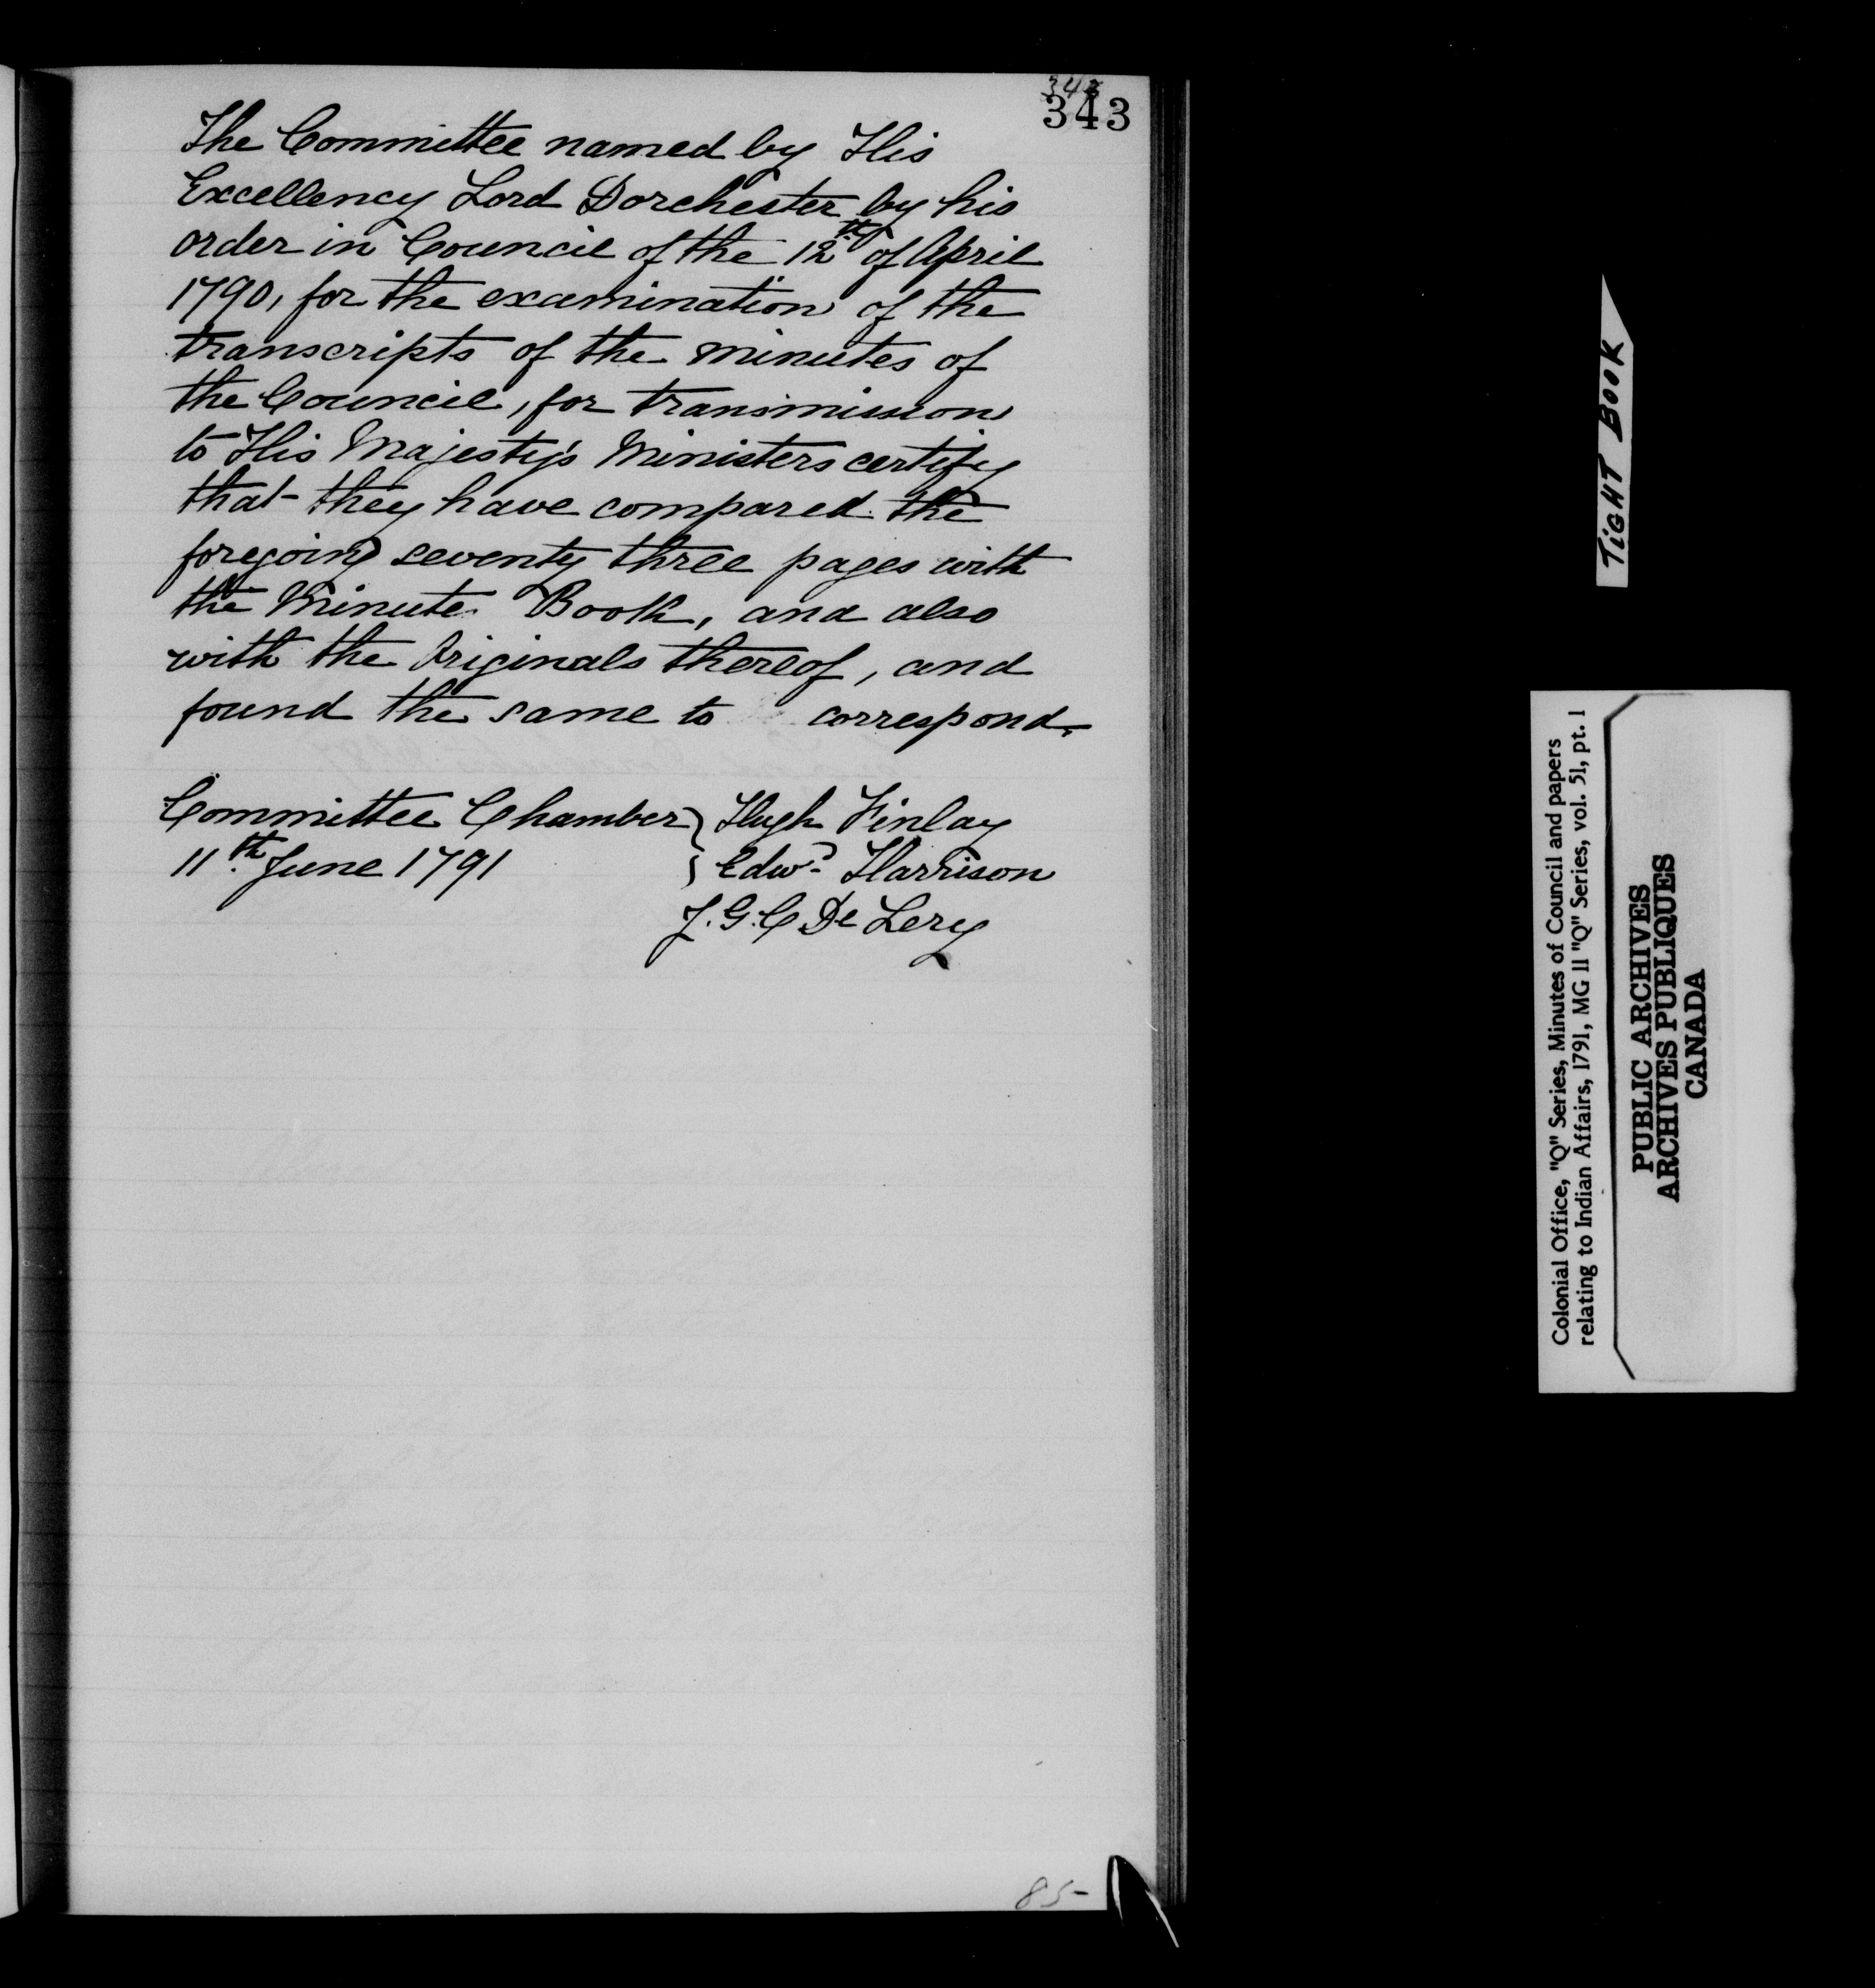 343
343
The Committee named by His
Excellency Lord Dorchester by his
order in Council of the 12th of April
1790, for the examination of the
transcripts of the minutes of
the Council, for transmission
to His Majesty's Ministers certify
that they have compared the
foregoing seventy three pages with
the Minute Book, and also
with the Originals thereof, and
found the same to correspond.
Committee Chamber } Hugh Finlay
11th June 1791 } Edwd Harrison
J. G. C De Lery
85-
TIGHT BOOK
Colonial Office, "Q" Series, Minutes of Council and papers
relating to Indian Affairs, 1791, MG 11 "Q" Series, vol. 51, pt. 1
PUBLIC ARCHIVES
ARCHIVES PUBLIQUES
CANADA